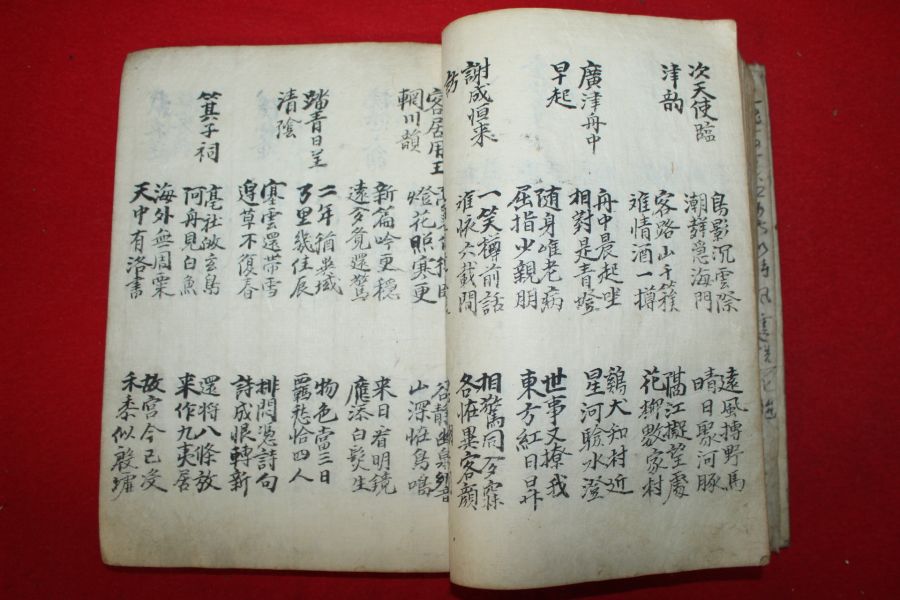 次天使臨
津韵
鳥影沉雲際
潮群急海門
遠風搏野馬
晴日聚河豚
客路山千簇
離情酒一樽
隔江擬望處
花柳數家村
廣津舟中
早起
舟中晨起坐
相對是青燈
鷄犬知村近
星河驗水澄
随身唯老病
屈指少親朋
世事又撩我
東方紅日昇
謝成恒来
訪
一笑樽前話
誰依六載間
相驚同
各恠異容顔
客居用王
輞川韻
燈花照寒更
谷静幽泉
山深恠鳥鳴
新篇吟更穏
遠夢覺還驚
来日看明鏡
應添白髮生
踏青日呈
清陰
二年猶異域
万里幾佳辰
物色當三日
羈愁恰四人
塞雲還帶雪
邊草不復春
排悶憑詩句
詩成恨轉新
箕子祠
亳社皈玄鳥
河舟見白魚
還将八條教
来作九夷居
海外無周粟
天中有洛書
故宮今已没
禾黍似殷墟